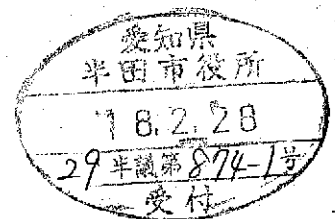 愛知県
半田市役所
18.2.28
29半議第874-1号
受付